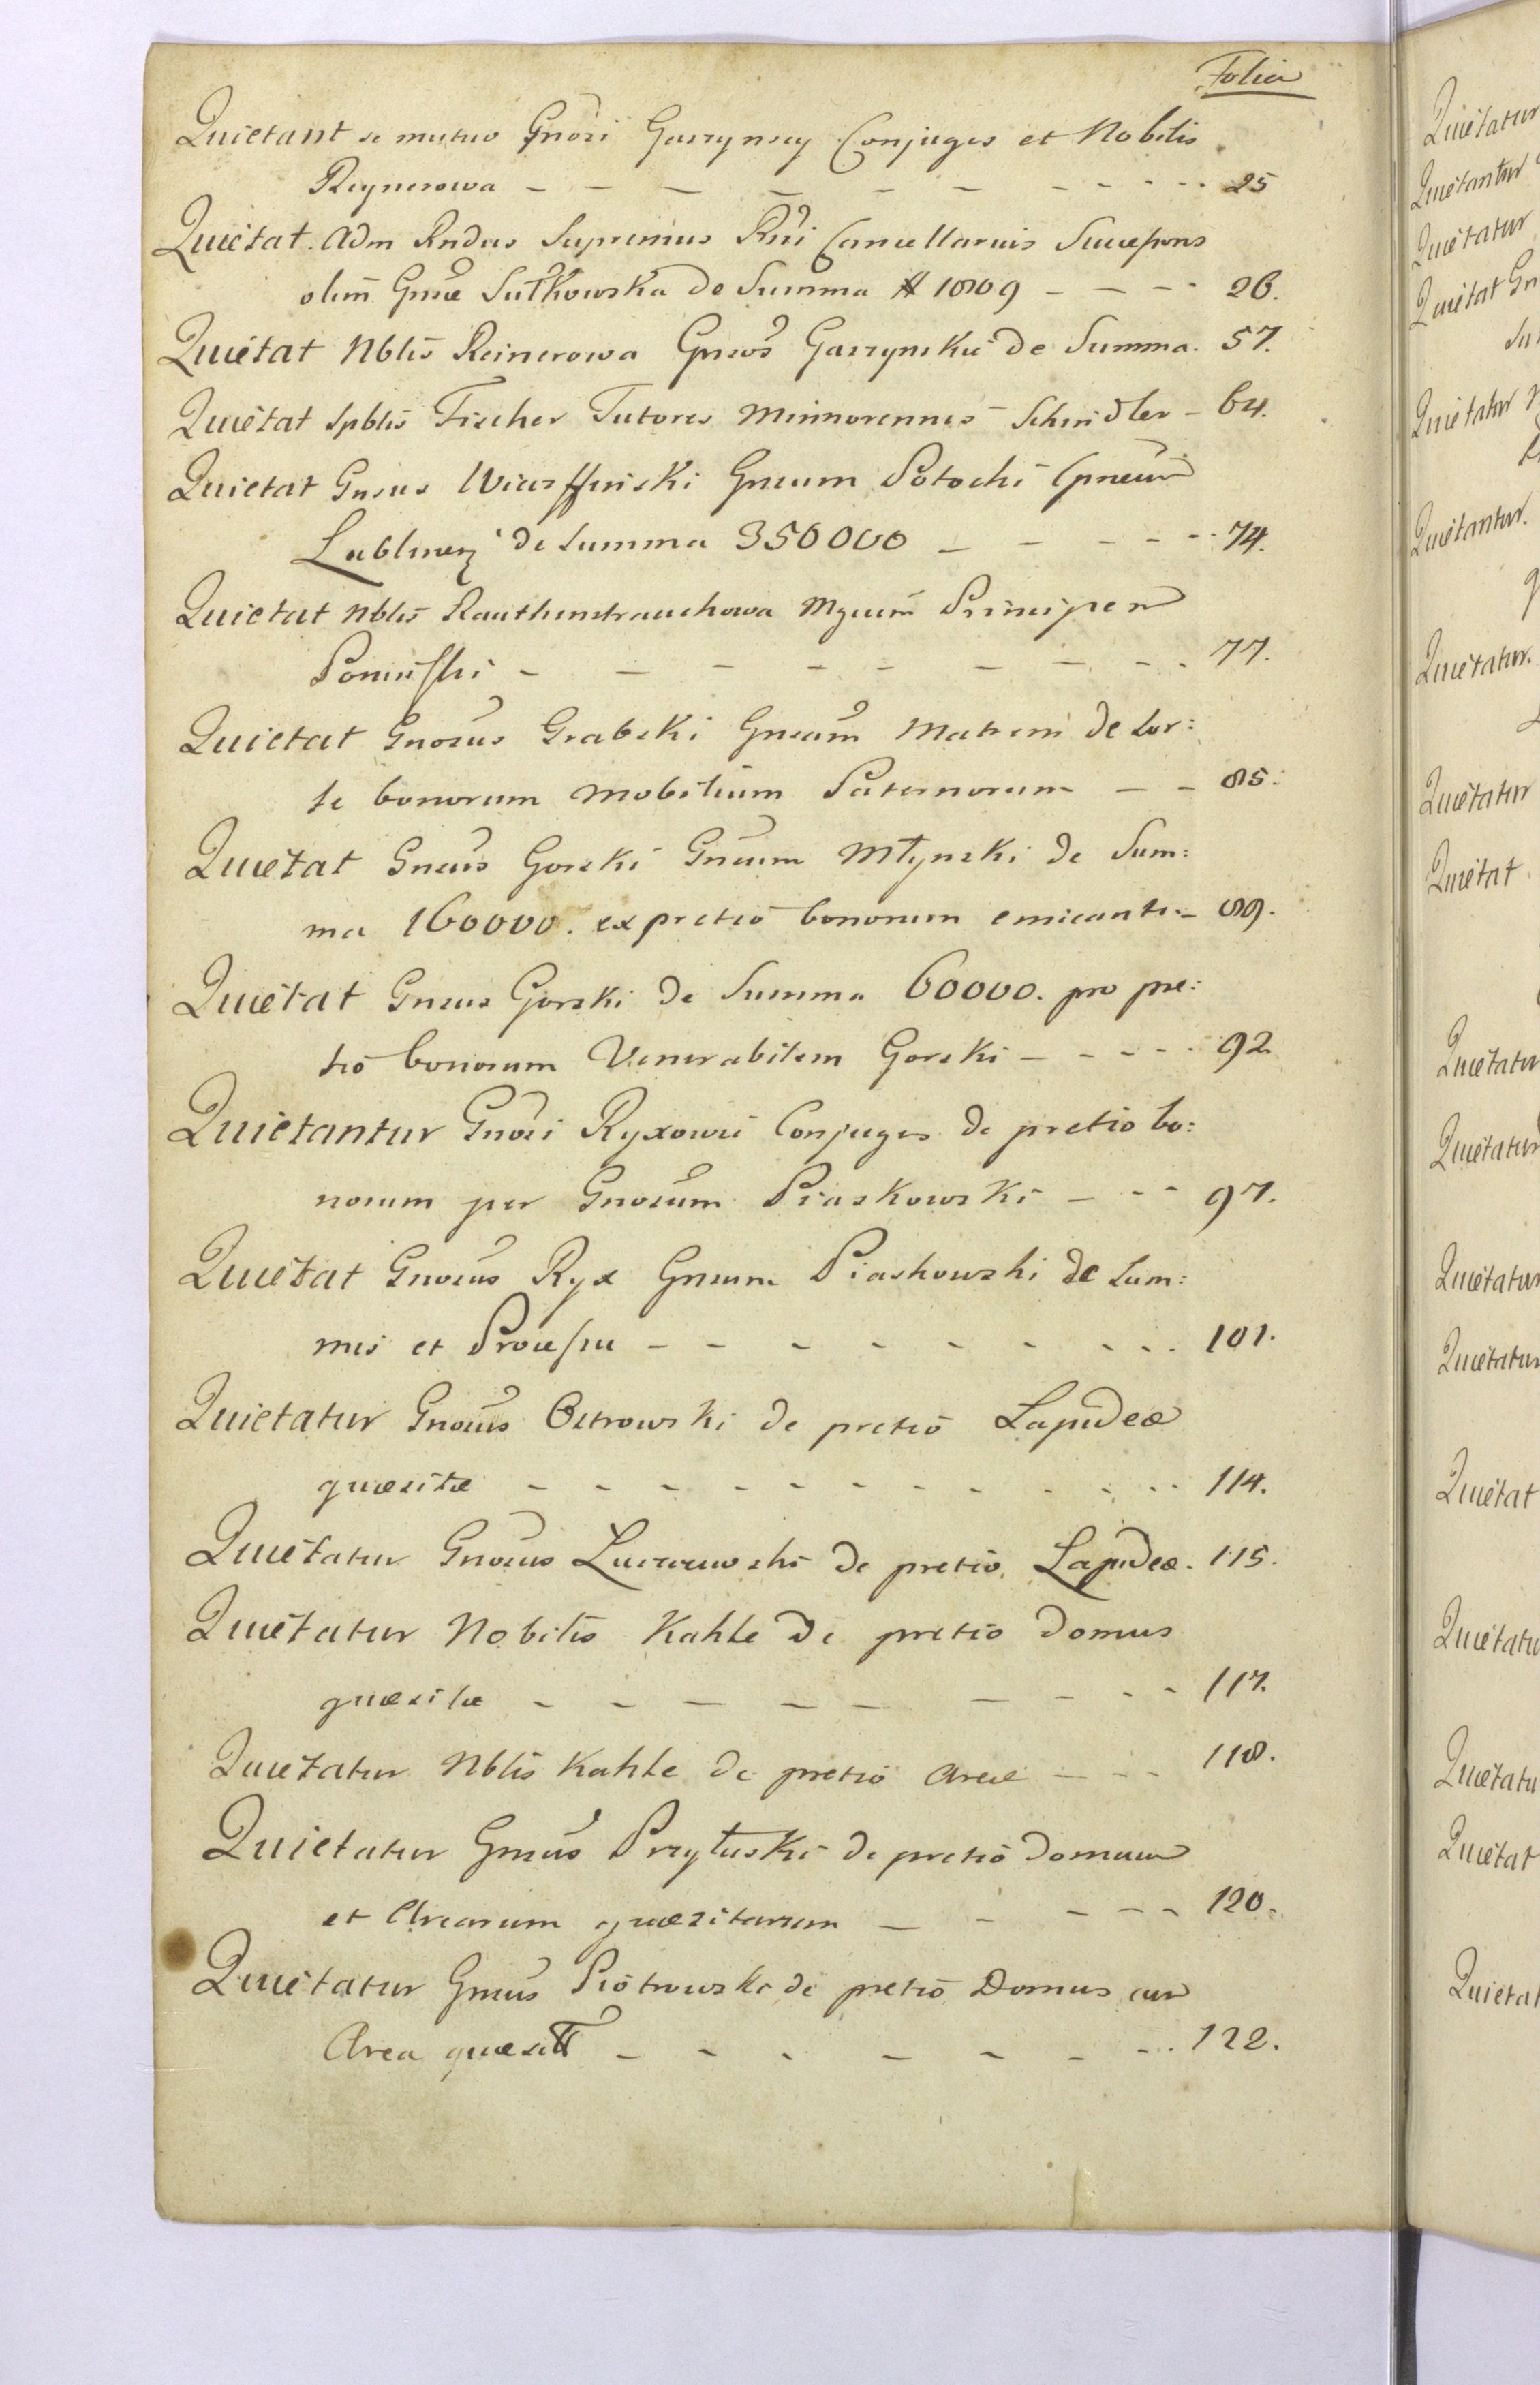 Folia
Quietant se mutuo Gnosi Garzynscy Conjuges et Nobilis
Reynerowa - - - - - - - - - - 25
Quietat Adm Rndus Supremus Rni Cancellarius Successores
olim Gnsæ Sułkowska de Summa # 10809 - - - - 26.
Quietat Nblis Reinerowa Gnsos Garzynskie de Summa. 57.
Quietat Spblis Fischer Tutores Minnorennes Schindler - 64.
Quietat Gnsus Gnsum Potocki Cpneum
de Summa 350000 - - - - - 74.
Quietat Nblis Rauthenstrauchowa Principem
Poninski - - - - - - - - 77.
Quietat Gnosus Grabski Gnsam Matrem de Sor:
te bonorum mobilium Paternorum - - 85.
Quietat Gnsus Gorski Gnsum Młynski de Sum:
ma 160000. ex pretio bonorum emicanti - 89.
Quietat Gnsus Gorski de Summa 60000. pro pre:
tio bonorum Venerabilem Gorski - - - - 92.
Quietantur Gnosi Ryxowie Conjuges de pretio bo:
norum per Gnosum Piaskowski - - - 97.
Quietat Gnosus Ryx Gnsum Piaskowski de Sum:
mis et Processu - - - - - - - - 101.
Quietatur Gnosus Ostrowski de pretio Lapideæ
quæsitæ - - - - - - - - - - 114.
Quietatur Gnosus de pretio Lapideæ. 115.
Quietatur Nobilis Kahle de pretio Domus
quæsitæ - - - - - - - - - 117.
Quietatur Nblis Kahle de pretio Areæ - - - 118.
Quietatur Gnsus Przyłuski de pretio Domuum
et Arearum quæsitarum - - - - - 120.
Quietatur Gnsus Piotrowski de pretio Domus cum
Area - - - - - - - 122.
Quietatur
Quietantur
Quietatur
Quietat Gn
Quietatur N
Quietantur.
Quietatur.
Quietatur
Quietat
Quietatur
Quietatur
Quietatur
Quietatur
Quietat
Quietatu
Quietatu
Quietat
Quietat